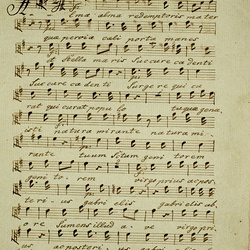 Alma alma redemptoris mater
qua pervia cali porta manes
et Stella maris Succure cadenti
Succure cadenti Surgere qui cu
rat qui curat populo tu qua gena
isti natura mirante natura mi
rante tuum Situm geni torem
geni to rem virgo prius ac pos
terius gabri elis gabri elis ab
Sumens illud a ve virgo pri
us ac posteri us gabri elis